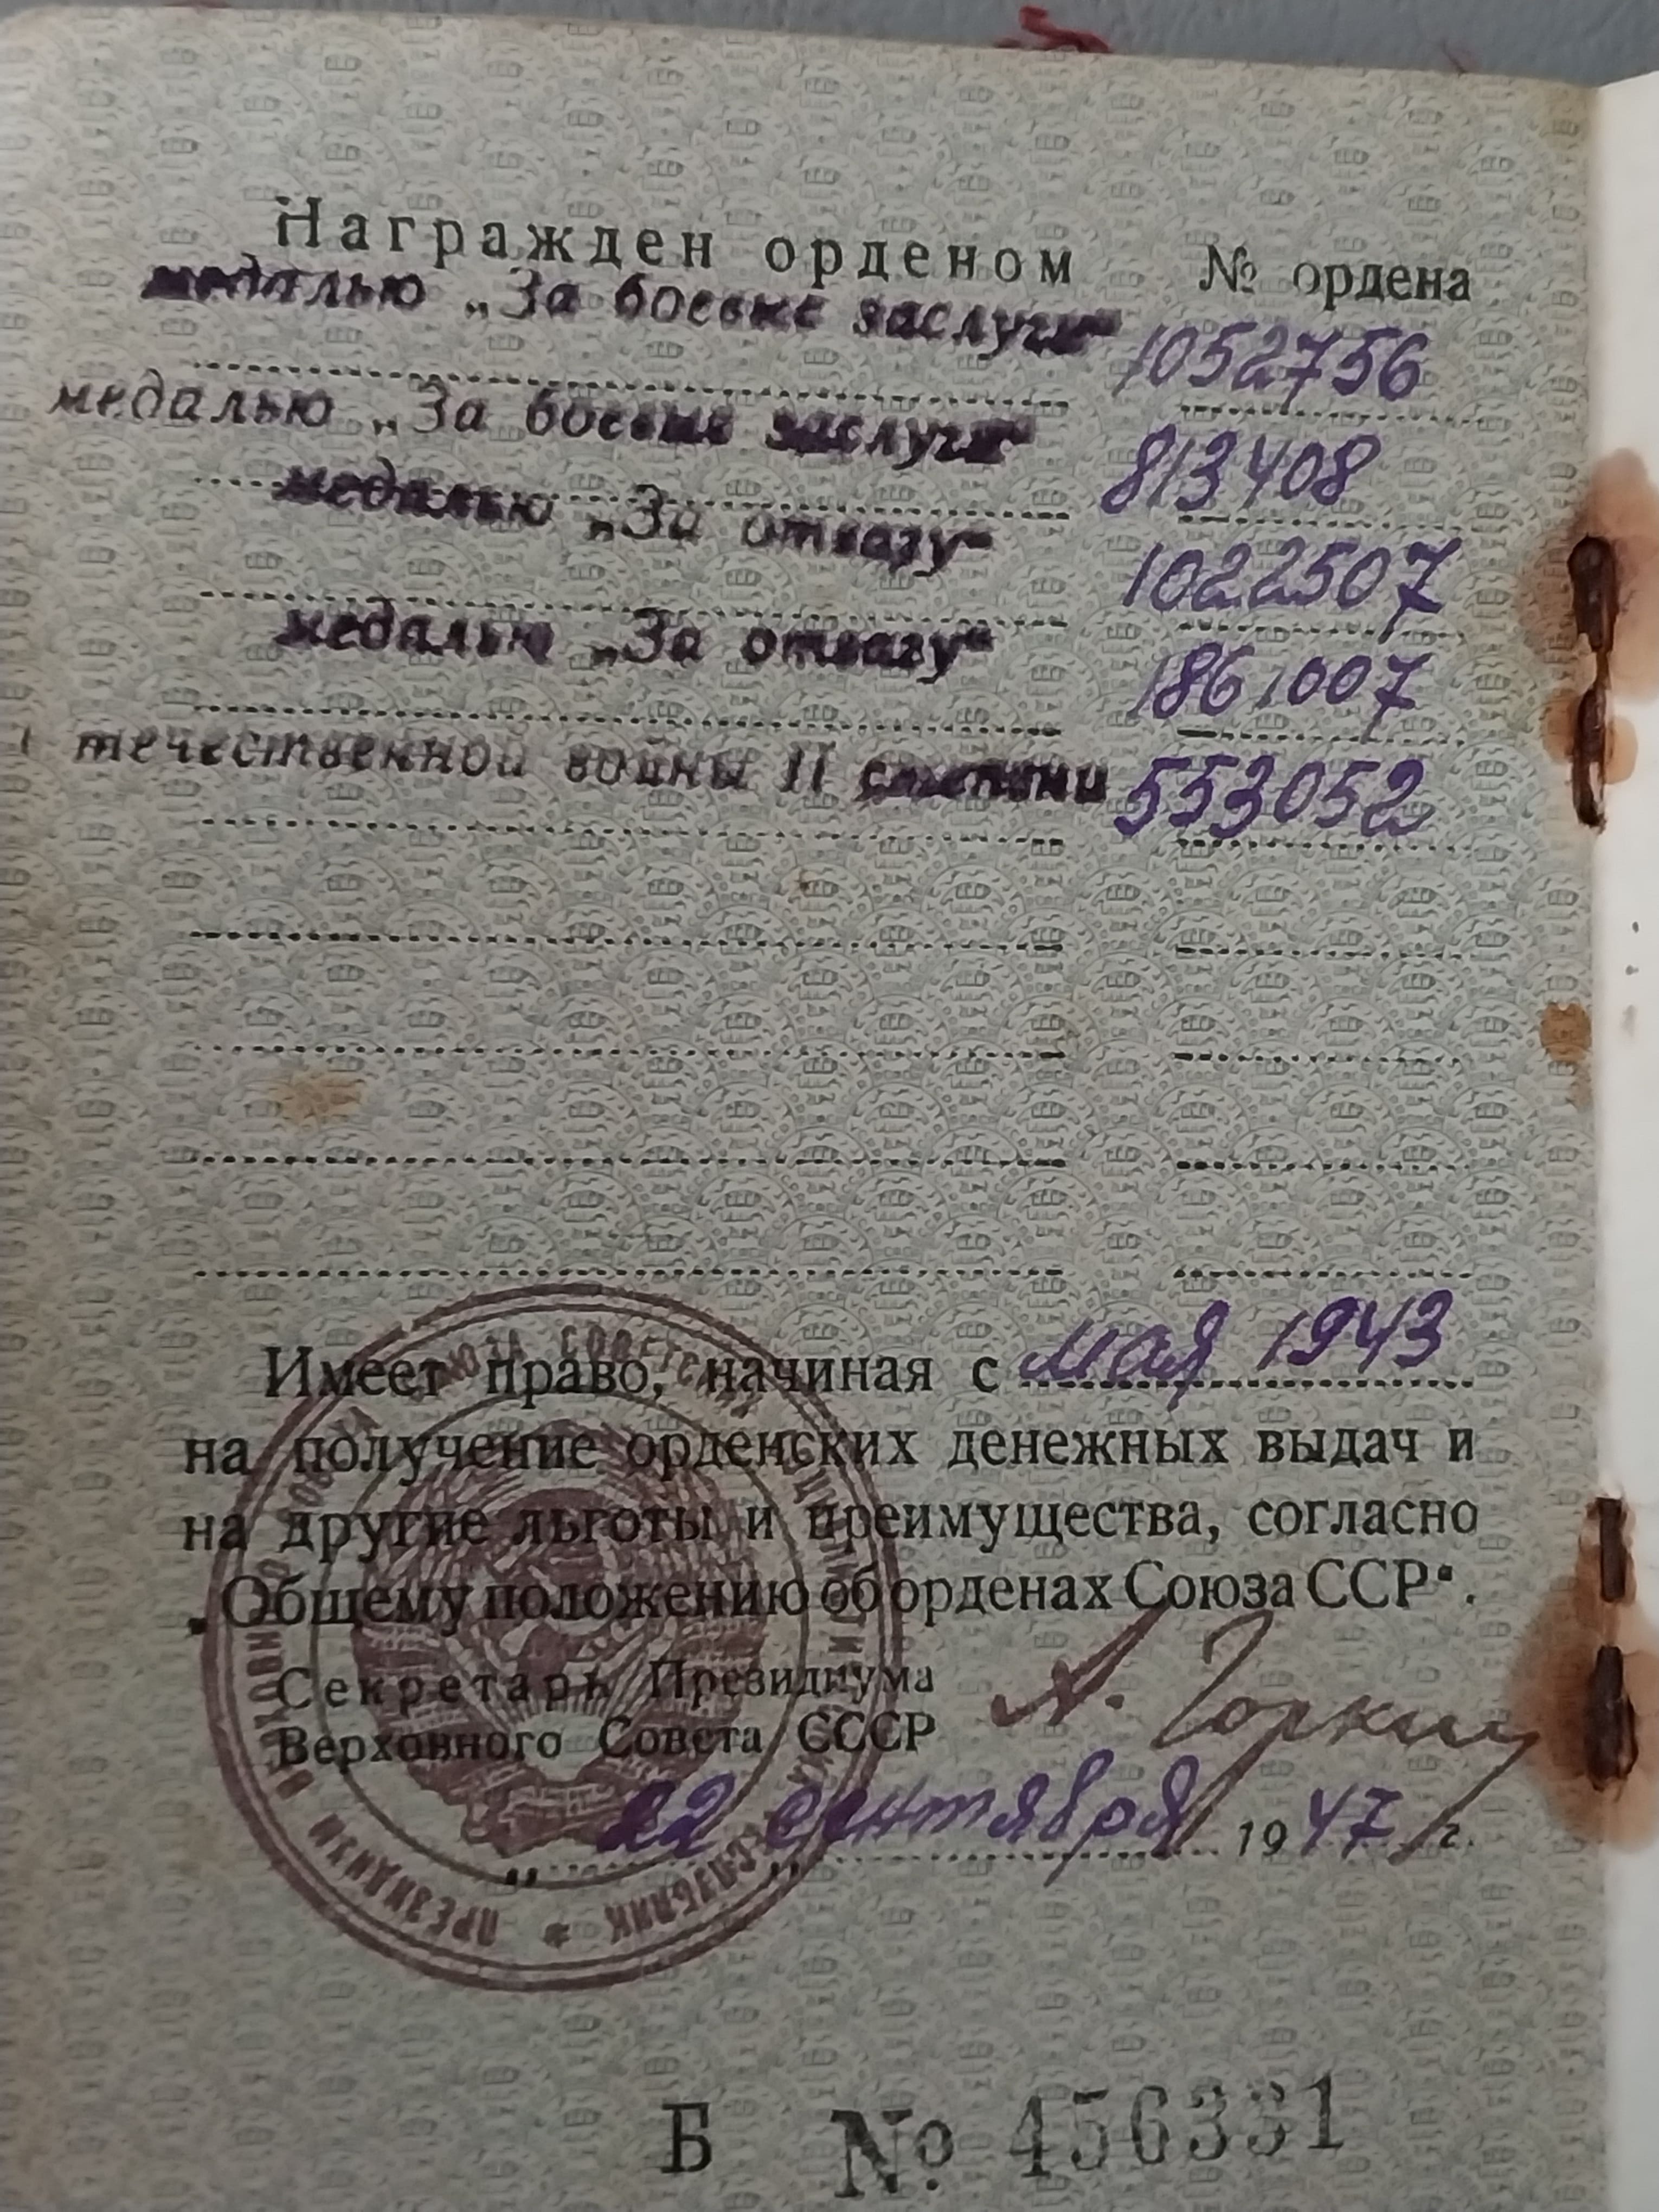 Награжден орденом № ордена
медалью „За боевые заслуги“ 1052756
медалью „За боевые заслуги“ 813408
медалью „За отвагу“ 1022507
медалью „За отвагу“ 1861007
течественной войны II степени 553052
Имеет право, начиная с мая 1943
на получение орденских денежных выдач и
на другие льготы и преимущества, согласно
„Общему положению об орденах Союза ССР“.
Секретарь Президиума
Верховного Совета СССР А. Горкин
„22“ сентября 1947 г.
Б № 456331